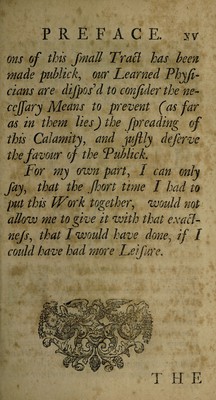 PREFACE. xv
ons of this ſmall Tract has been
made publick, our Learned Phyſi-
cians are diſpos'd to conſider the ne-
ceſſary Means to prevent (as far
as in them lies) the ſpreading of
this Calamity, and juſtly deſerve
the favour of the Publick.
For my own part, I can only
ſay, that the ſhort time I had to
put this Work together, would not
allow me to give it with that exact-
neſs, that I would have done, if I
could have had more Leiſure.
THE